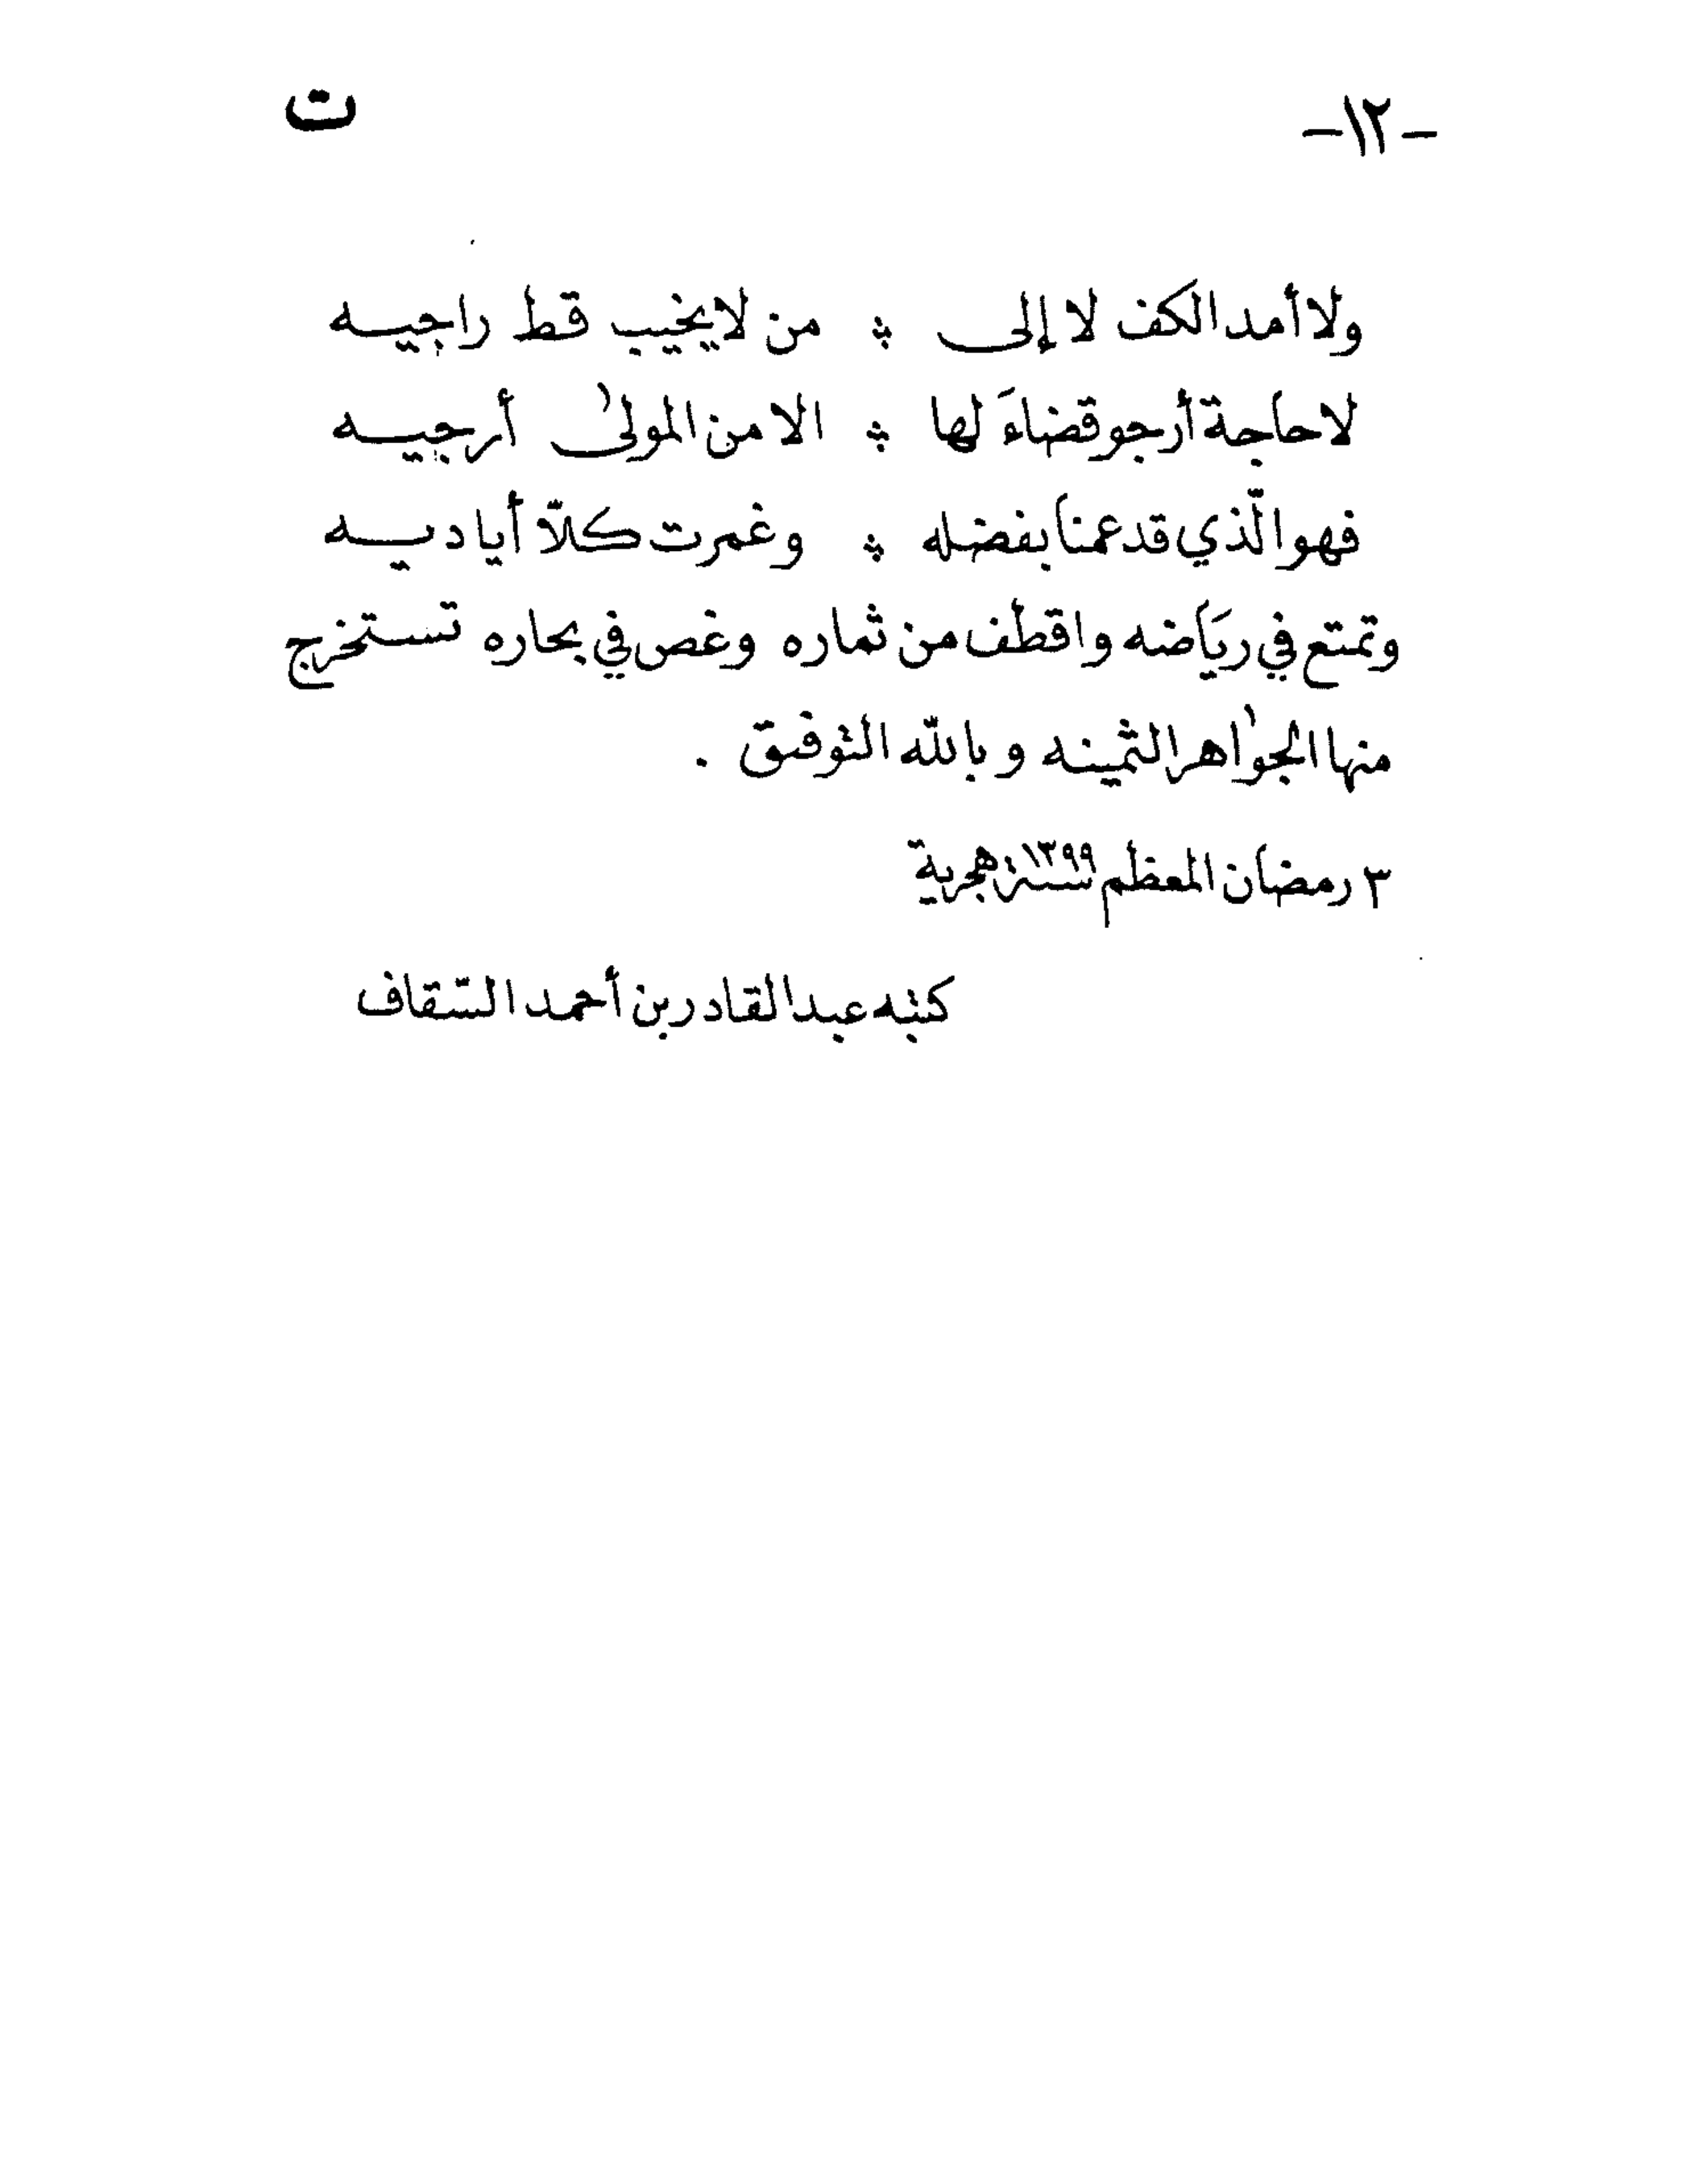 -١٢- ت
ولا أمد الكف لا إلى ؞ من لا يخيب قط راجيه
لا حاجة أرجو قضاءَ لها ؞ الا من المولى أرجيه
فهو الّذي قد عمنا بفضله ؞ وغمرت كلّا أياديه
وتمتع في ريَاضه واقطف من ثماره وغص في بحاره تستخرج
منها الجواهر الثمينه وبالله التوفيق .
٣ رمضان المعظم سنة ١٣٩٩ هجرية
كتبه عبد القادر بن أحمد السّقاف